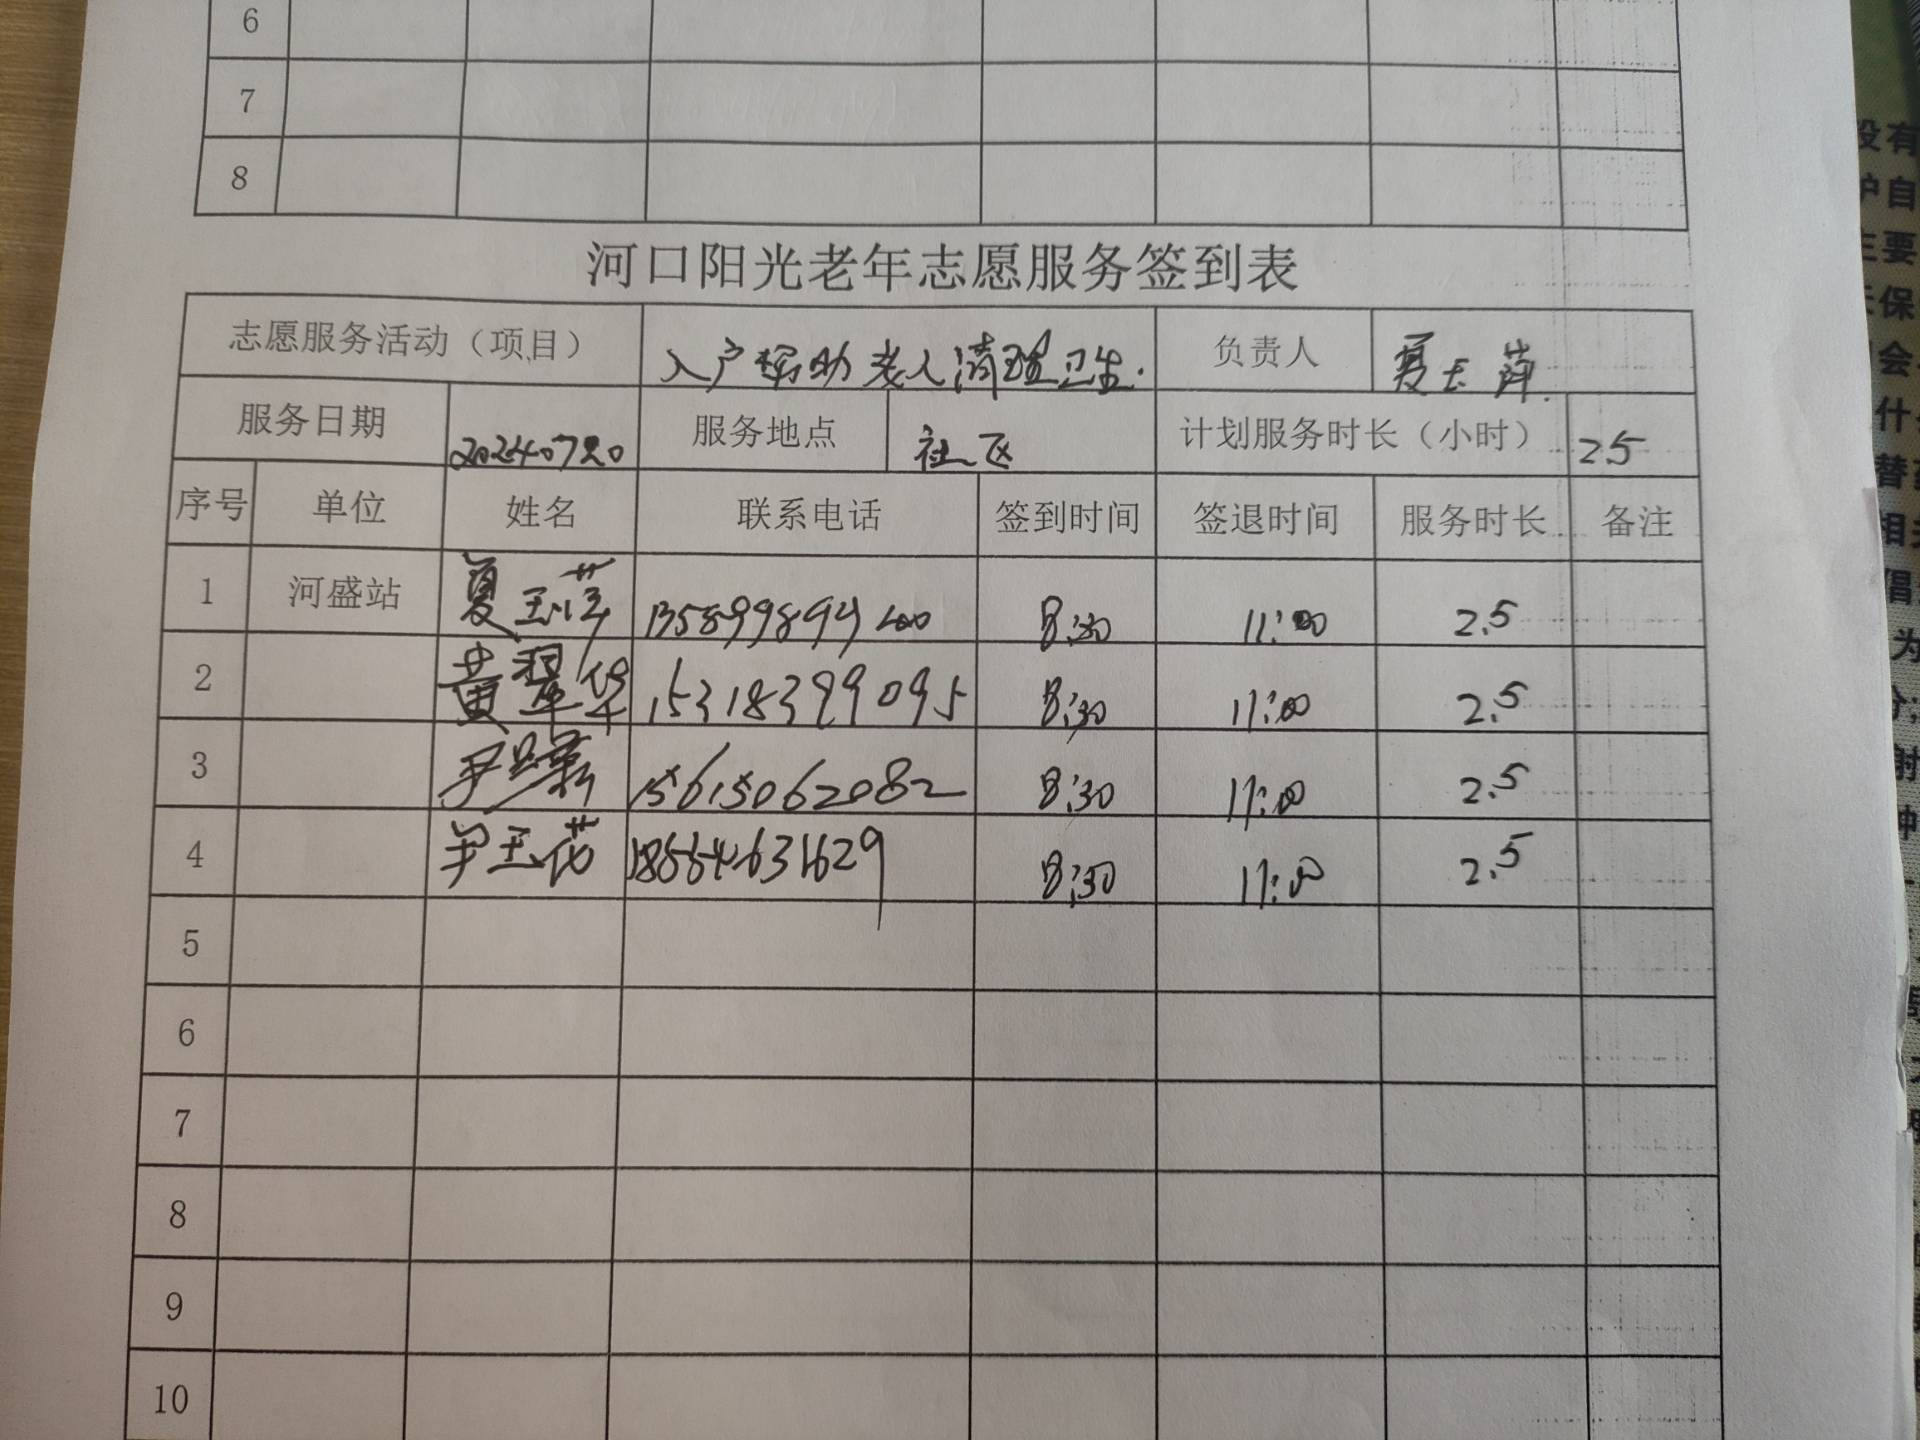 6
7
8
河口阳光老年志愿服务签到表
志愿服务活动（项目） 入户帮助老人清理卫生. 负责人 夏玉萍.
服务日期 20240720 服务地点 社区 计划服务时长（小时） 2.5
序号 单位 姓名 联系电话 签到时间 签退时间 服务时长 备注
1 河盛站 夏玉萍 8:30 11:00 2.5
2 黄翠华 15318399095 8:30 11:00 2.5
3 尹 15615062082 8:30 11:00 2.5
4 玉花 18554631629 8:30 11:00 2.5
5
6
7
8
9
10
没有
护自
主要
保
会
什
替
相
倡
为
射
种